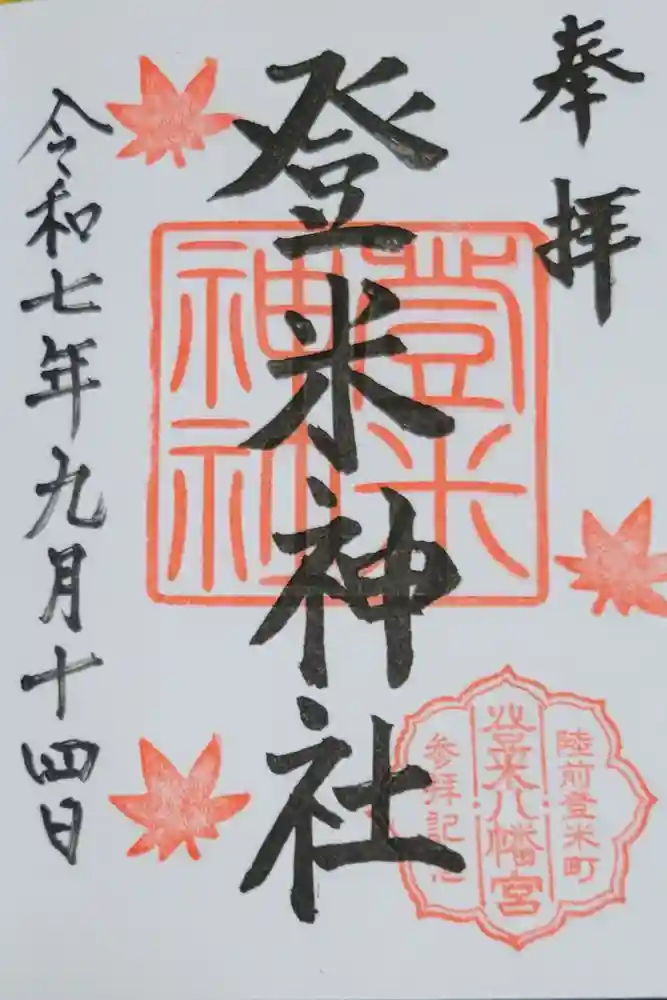 奉拝
登米神社
登米
神社
陸前登米町
登米八幡宮
参拝記念
令和七年九月十四日